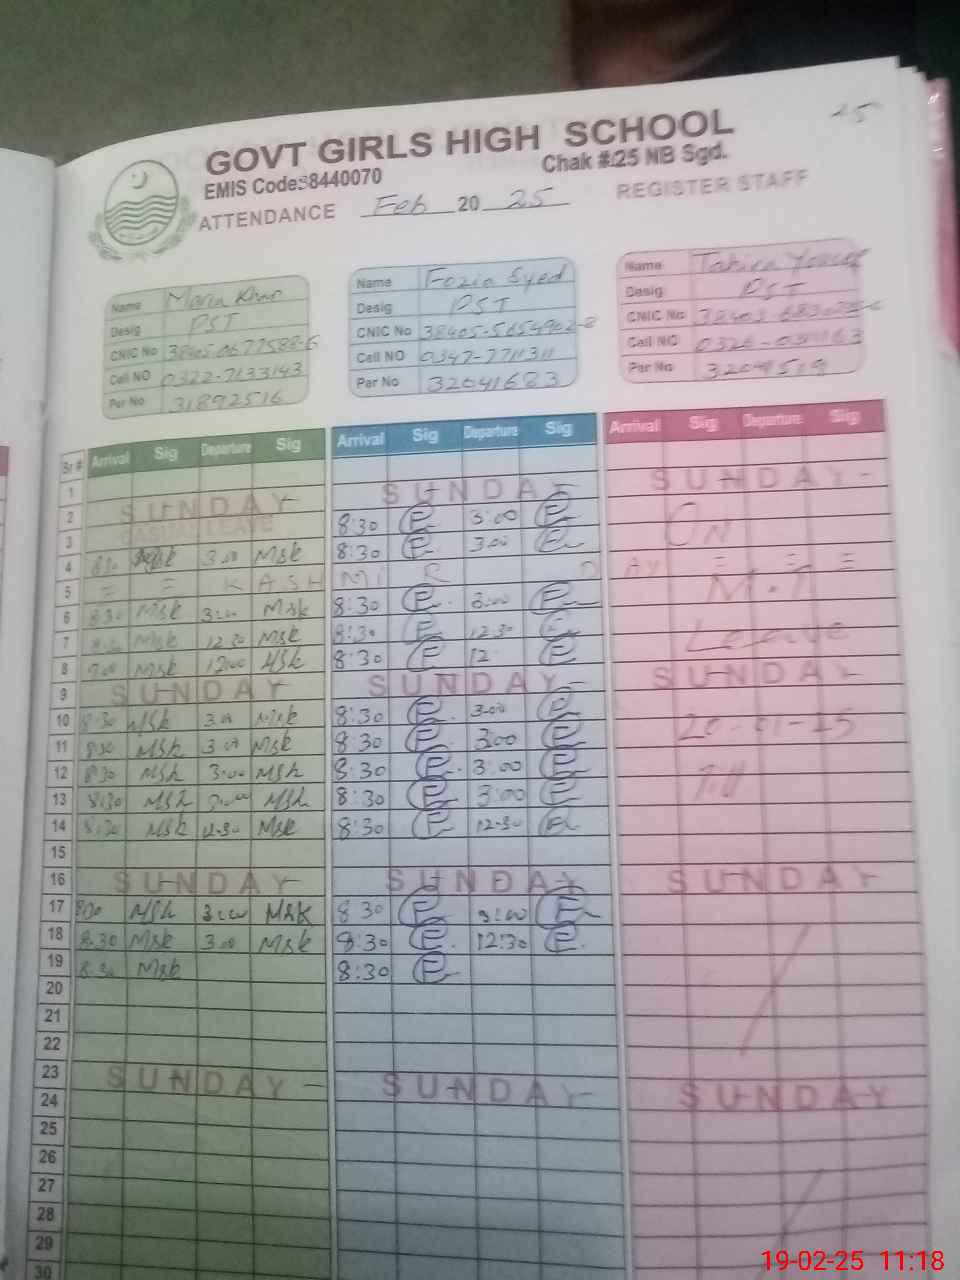 GOVT GIRLS HIGH SCHOOL
EMIS Code:38440070 Chak #:25 NB Sgd.
ATTENDANCE Feb 20 25 REGISTER STAFF
Name Maria Khan
Desig PST
CNIC No
Cell NO 0322-7133143
Per No 31892516
Name Fozia Syed
Desig PST
CNIC No 38405-5654902-8
Cell NO 0347-7711311
Per No 32041683
Name Tahira
Desig PST
CNIC No
Cell NO
Per No 32041519
Sr # Arrival Sig Departure Sig Arrival Sig Departure Sig Arrival Sig Departure Sig
1 SUNDAY SUNDAY SUNDAY
2 CASUAL LEAVE 8:30 E 3:00 E On
3 Msk 3.00 Msk 8:30 E 3.00 E
4 = = KASHMIR DAY = = =
M.T
6 8:30 Msk 3:00 Msk 8:30 E 3:00 E
7 Msk 12 30 Msk 8:30 E 12:30 E Leave
8 9.00 Msk 12:00 Msk 8:30 E 12 E
9 SUNDAY SUNDAY SUNDAY
10 8:30 Msk 3.00 Msk 8:30 E 3:00 E 20-01-25
11 830 Msk 3.00 Msk 8:30 E 3:00 E
12 8:30 Msk 3:00 Msk 8:30 E 3:00 E Till
13 8:30 Msk 3:00 Msk 8:30 E 3:00 E
14 8:30 Msk 12.30 Msk 8:30 E 12:30 E
15
16 SUNDAY SUNDAY SUNDAY
17 Msk 3:00 Msk 8 30 E 3:00 E
18 8.30 Msk 3.00 Msk 8:30 E 12:30 E
19 8:30 Msk 8:30 E
20
21
22
23 SUNDAY SUNDAY SUNDAY
24
25
26
27
28
29
30
19-02-25 11:18